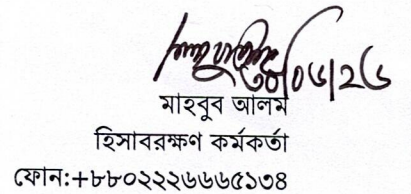 ৩০/০৬/২৬
মাহবুব আলম
হিসাবরক্ষণ কর্মকর্তা
ফোন:+৮৮০২২২৬৬৬৫১৩৪